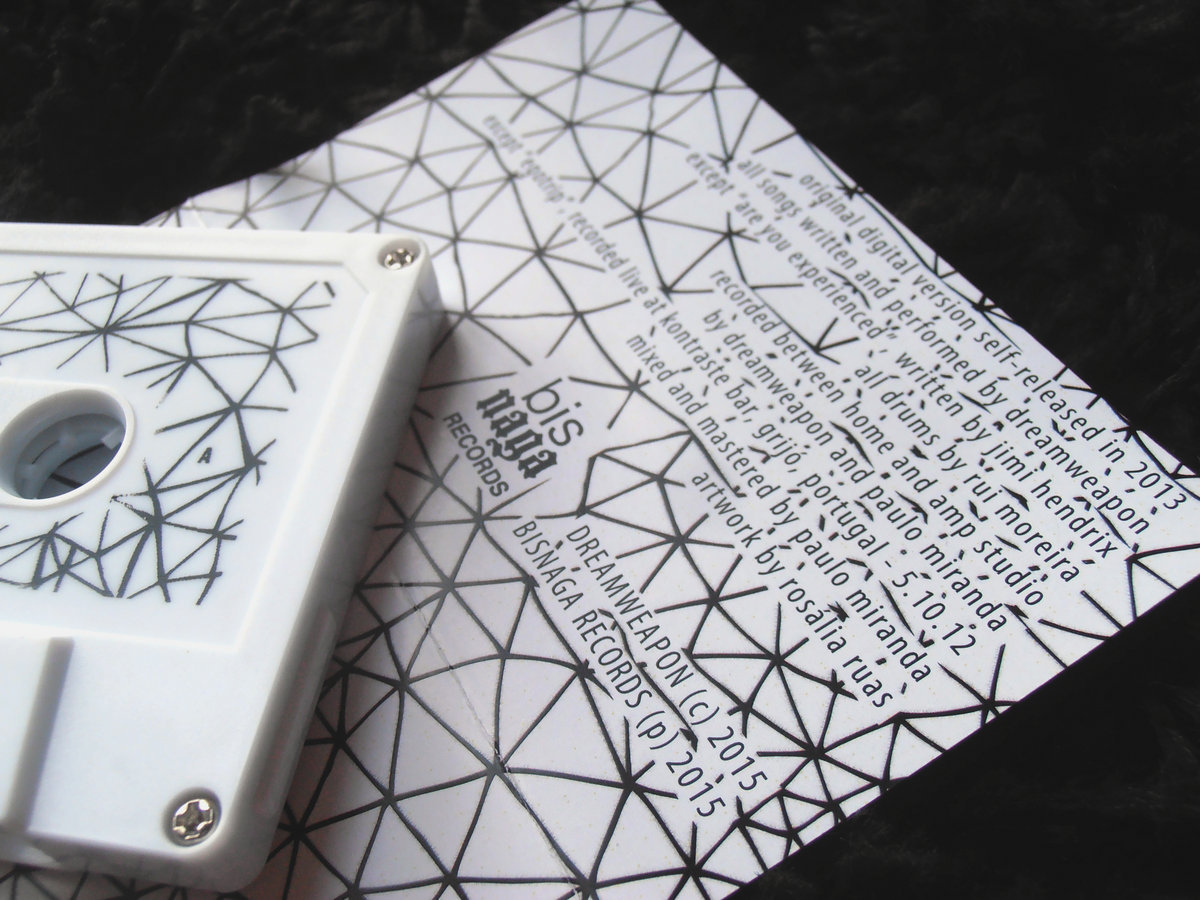 original digital version self-released in 2013
all songs written and performed by dreamweapon
except "are you experienced", written by jimi hendrix
all drums by rui moreira
recorded between home and amp studio
by dreamweapon and paulo miranda
except "egotrip", recorded live at kontraste bar, grijó, portugal - 5.10.12
mixed and mastered by paulo miranda
artwork by rosália ruas
bis
naga
RECORDS
DREAMWEAPON (c) 2015
BISNAGA RECORDS (p) 2015
A